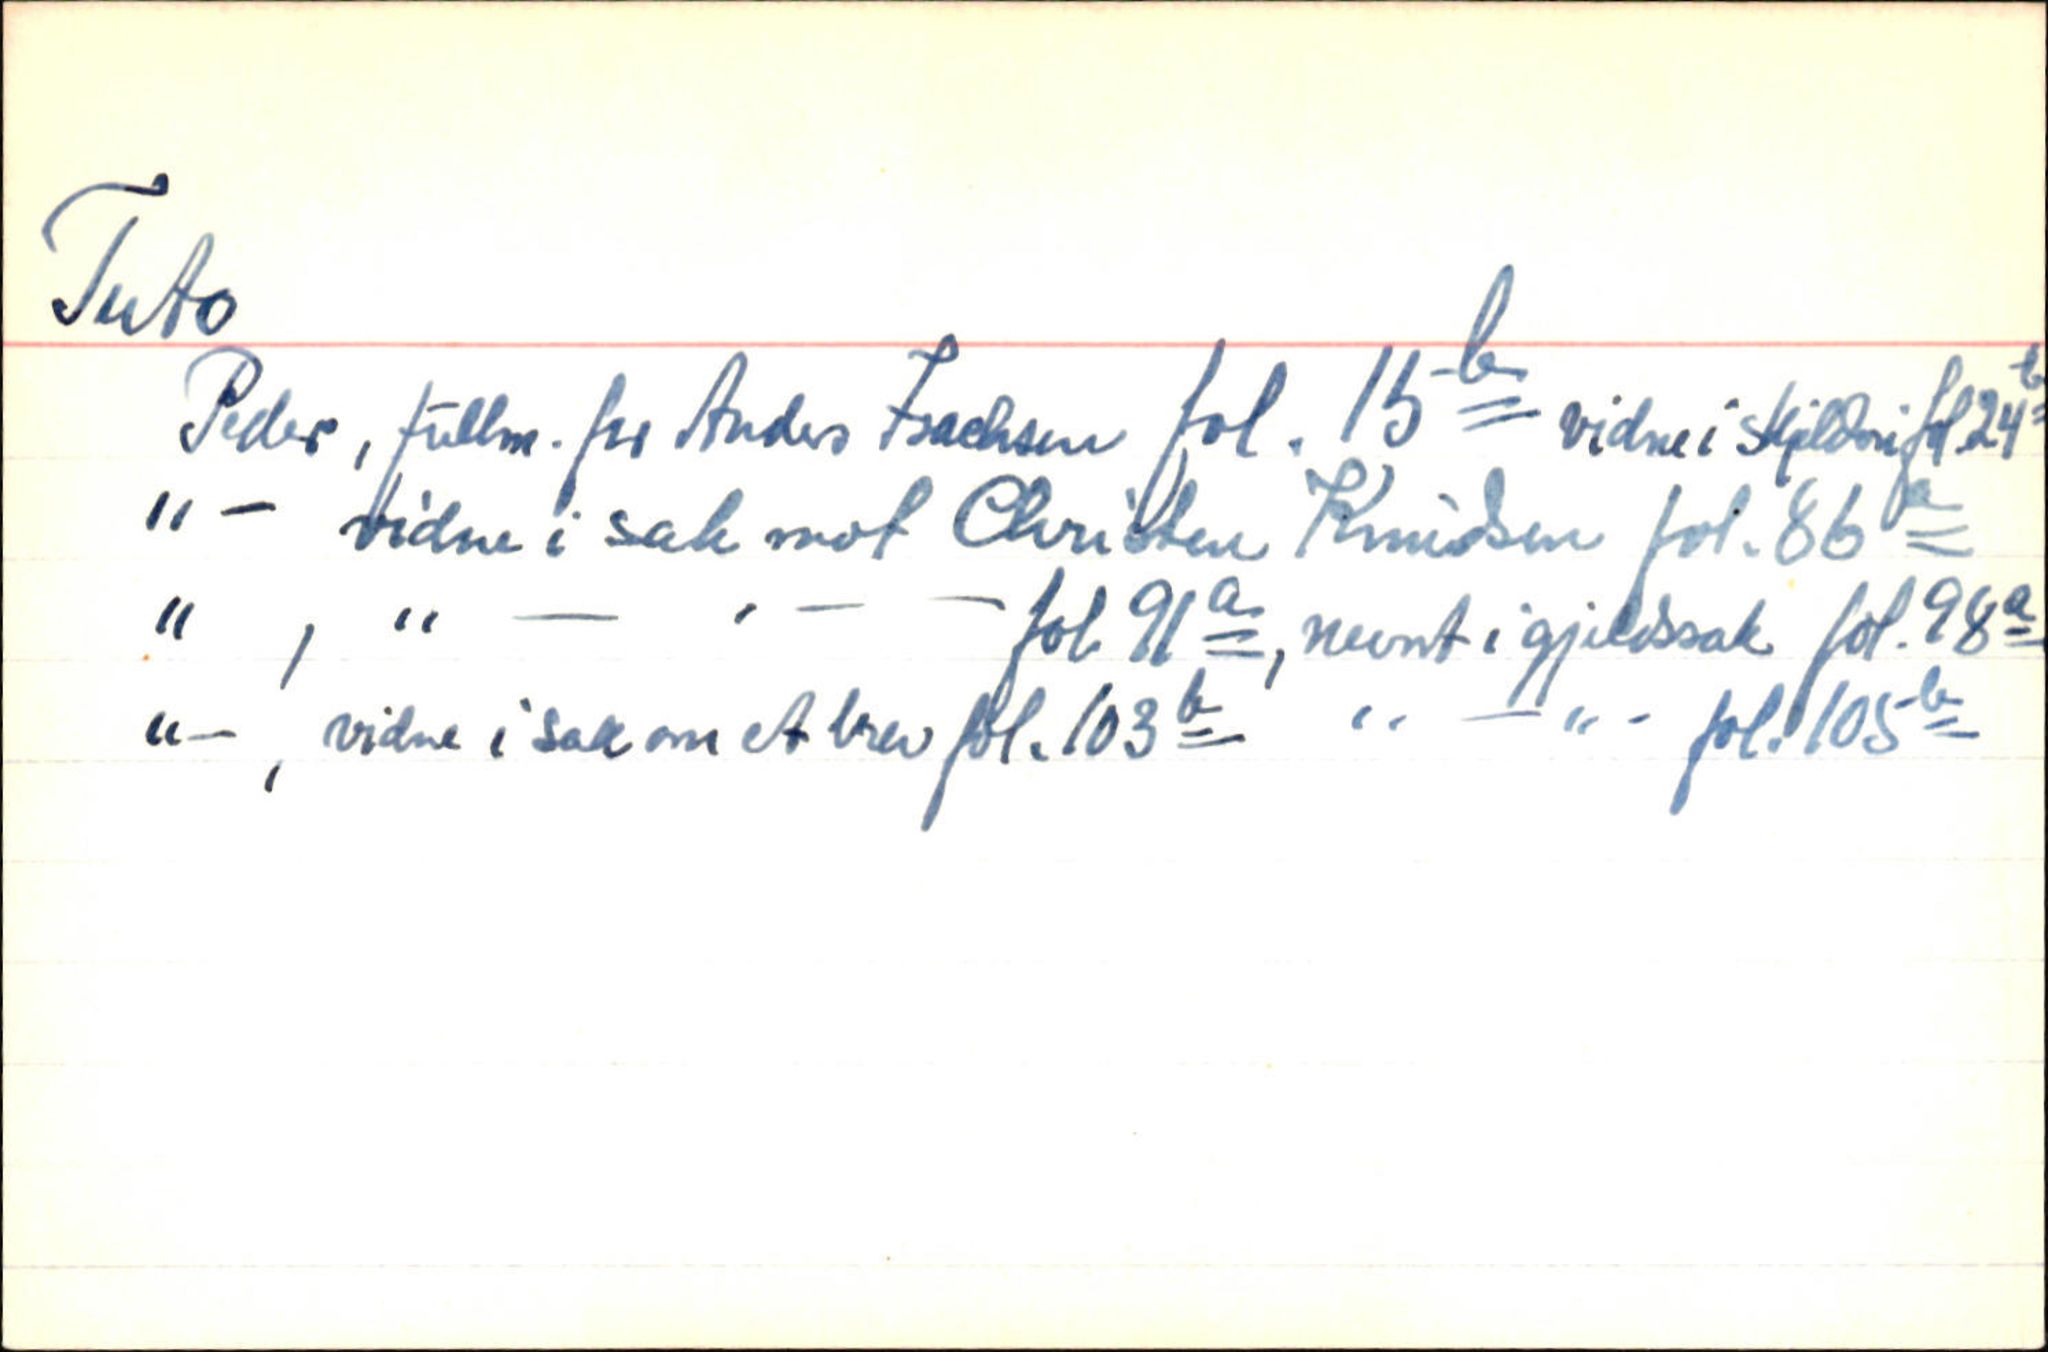 Tuto
Peder, fullm. for Anders Isachsen fol. 15 b vidne i skjeldsri fol. 24 b
" - vidne i sak mot Christen Knudsen fol. 86 a
" , " — " — — fol. 91 a, nevnt i gjeldssak fol. 98 a
" - , vidne i sak om et brev fol. 103 b " — " - fol. 105 b